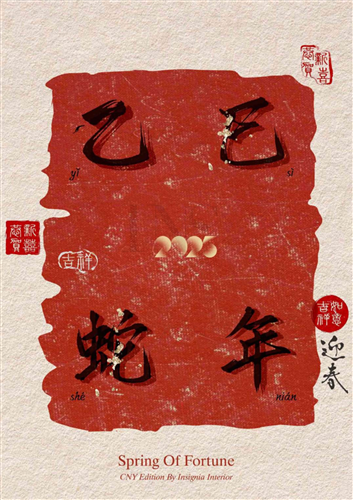 恭賀
新喜
乙 巳
yǐ sì
恭賀
新禧
吉祥
2025
如意
吉祥
迎春
蛇 年
shé nián
Spring Of Fortune
CNY Edition By Insignia Interior